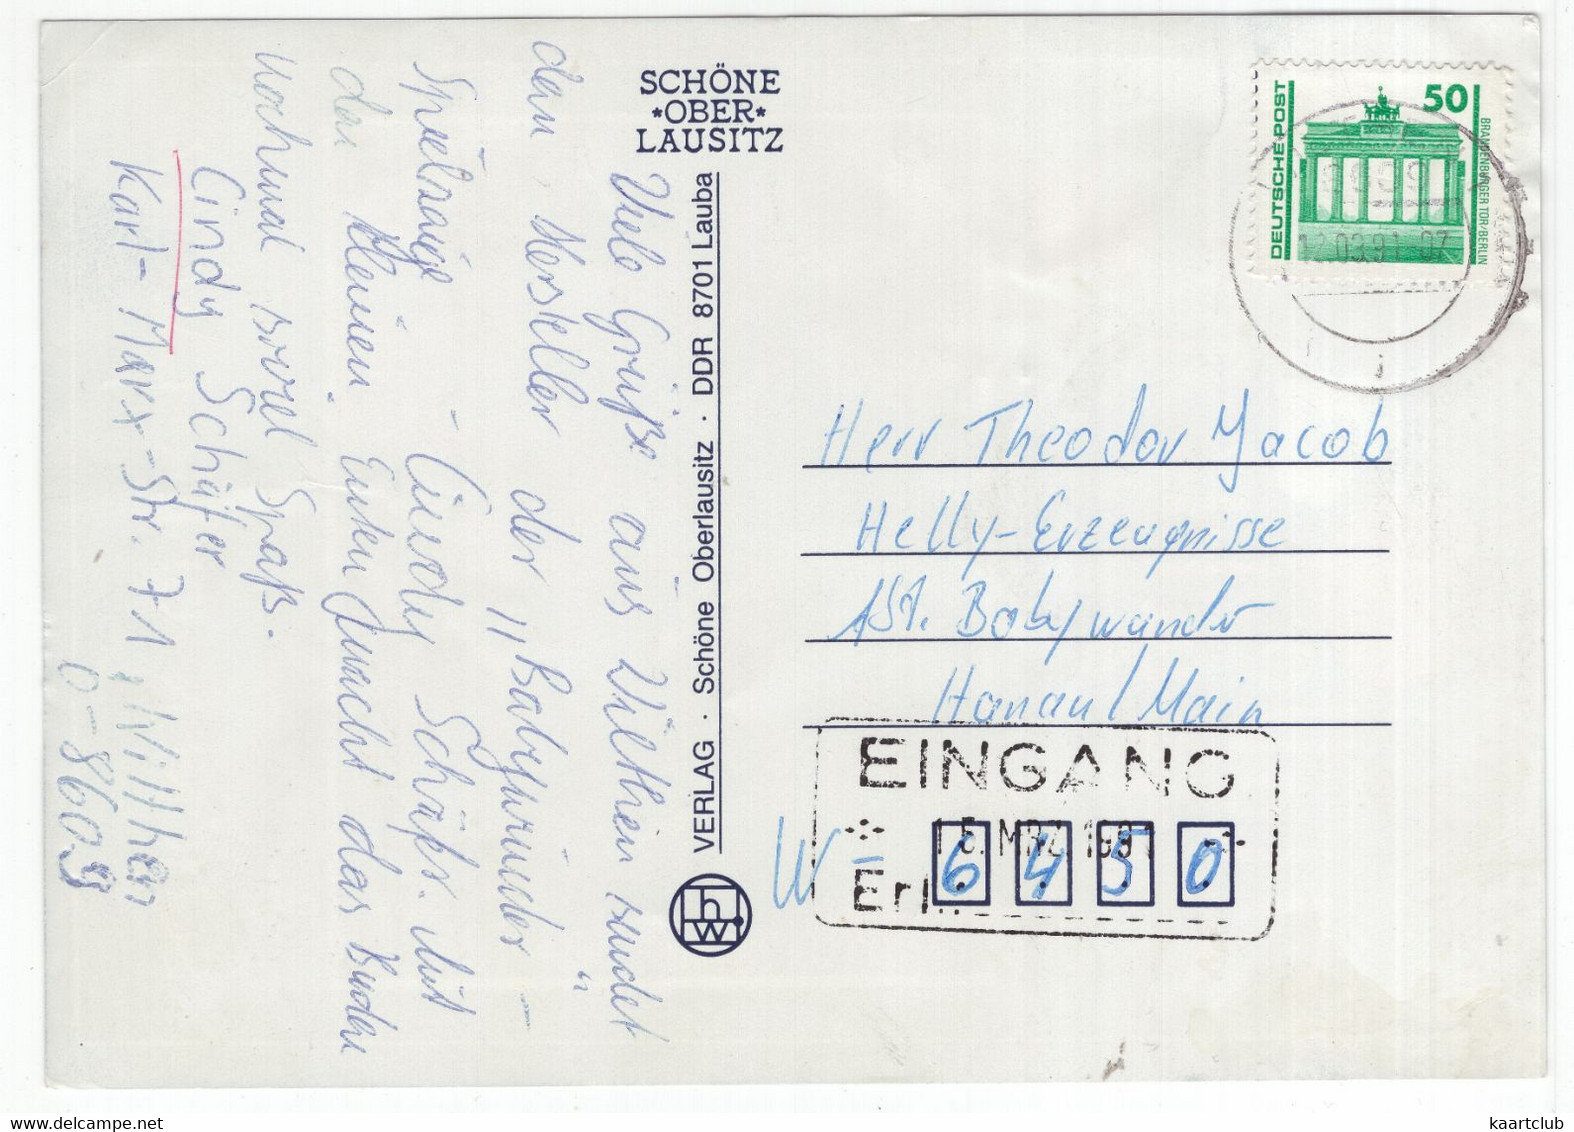 SCHÖNE
*OBER*
LAUSITZ
VERLAG · Schöne Oberlausitz · DDR 8701 Lauba
hw.
Viele Grüße aus Wilthen sendet
dem Hersteller der "Babywunder-"
Spielzeuge Cindy Schäfer. Mit
der kleinen Ente macht das Baden
nochmal soviel Spaß.
Cindy Schäfer
Karl-Marx-Str. 71
Wilthen
O-8609
DEUTSCHE POST
50
BRANDENBURGER TOR/BERLIN
12.03.91 07
Herr Theodor Jacob
Helly-Erzeugnisse
1St. Babywunder
Hanau/Main
W- 6450
EINGANG
15. MRZ. 1991
Erl.
kaartclub